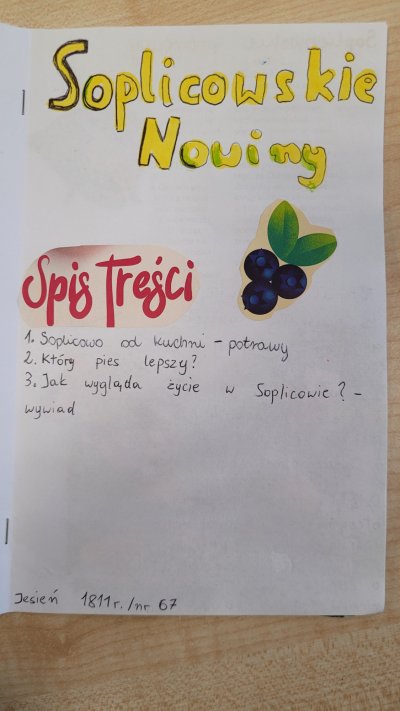 Soplicowskie
Nowiny
Spis Treści
1. Soplicowo od kuchni - potrawy
2. Który pies lepszy?
3. Jak wygląda życie w Soplicowie? -
wywiad
Jesień 1811r./nr 67